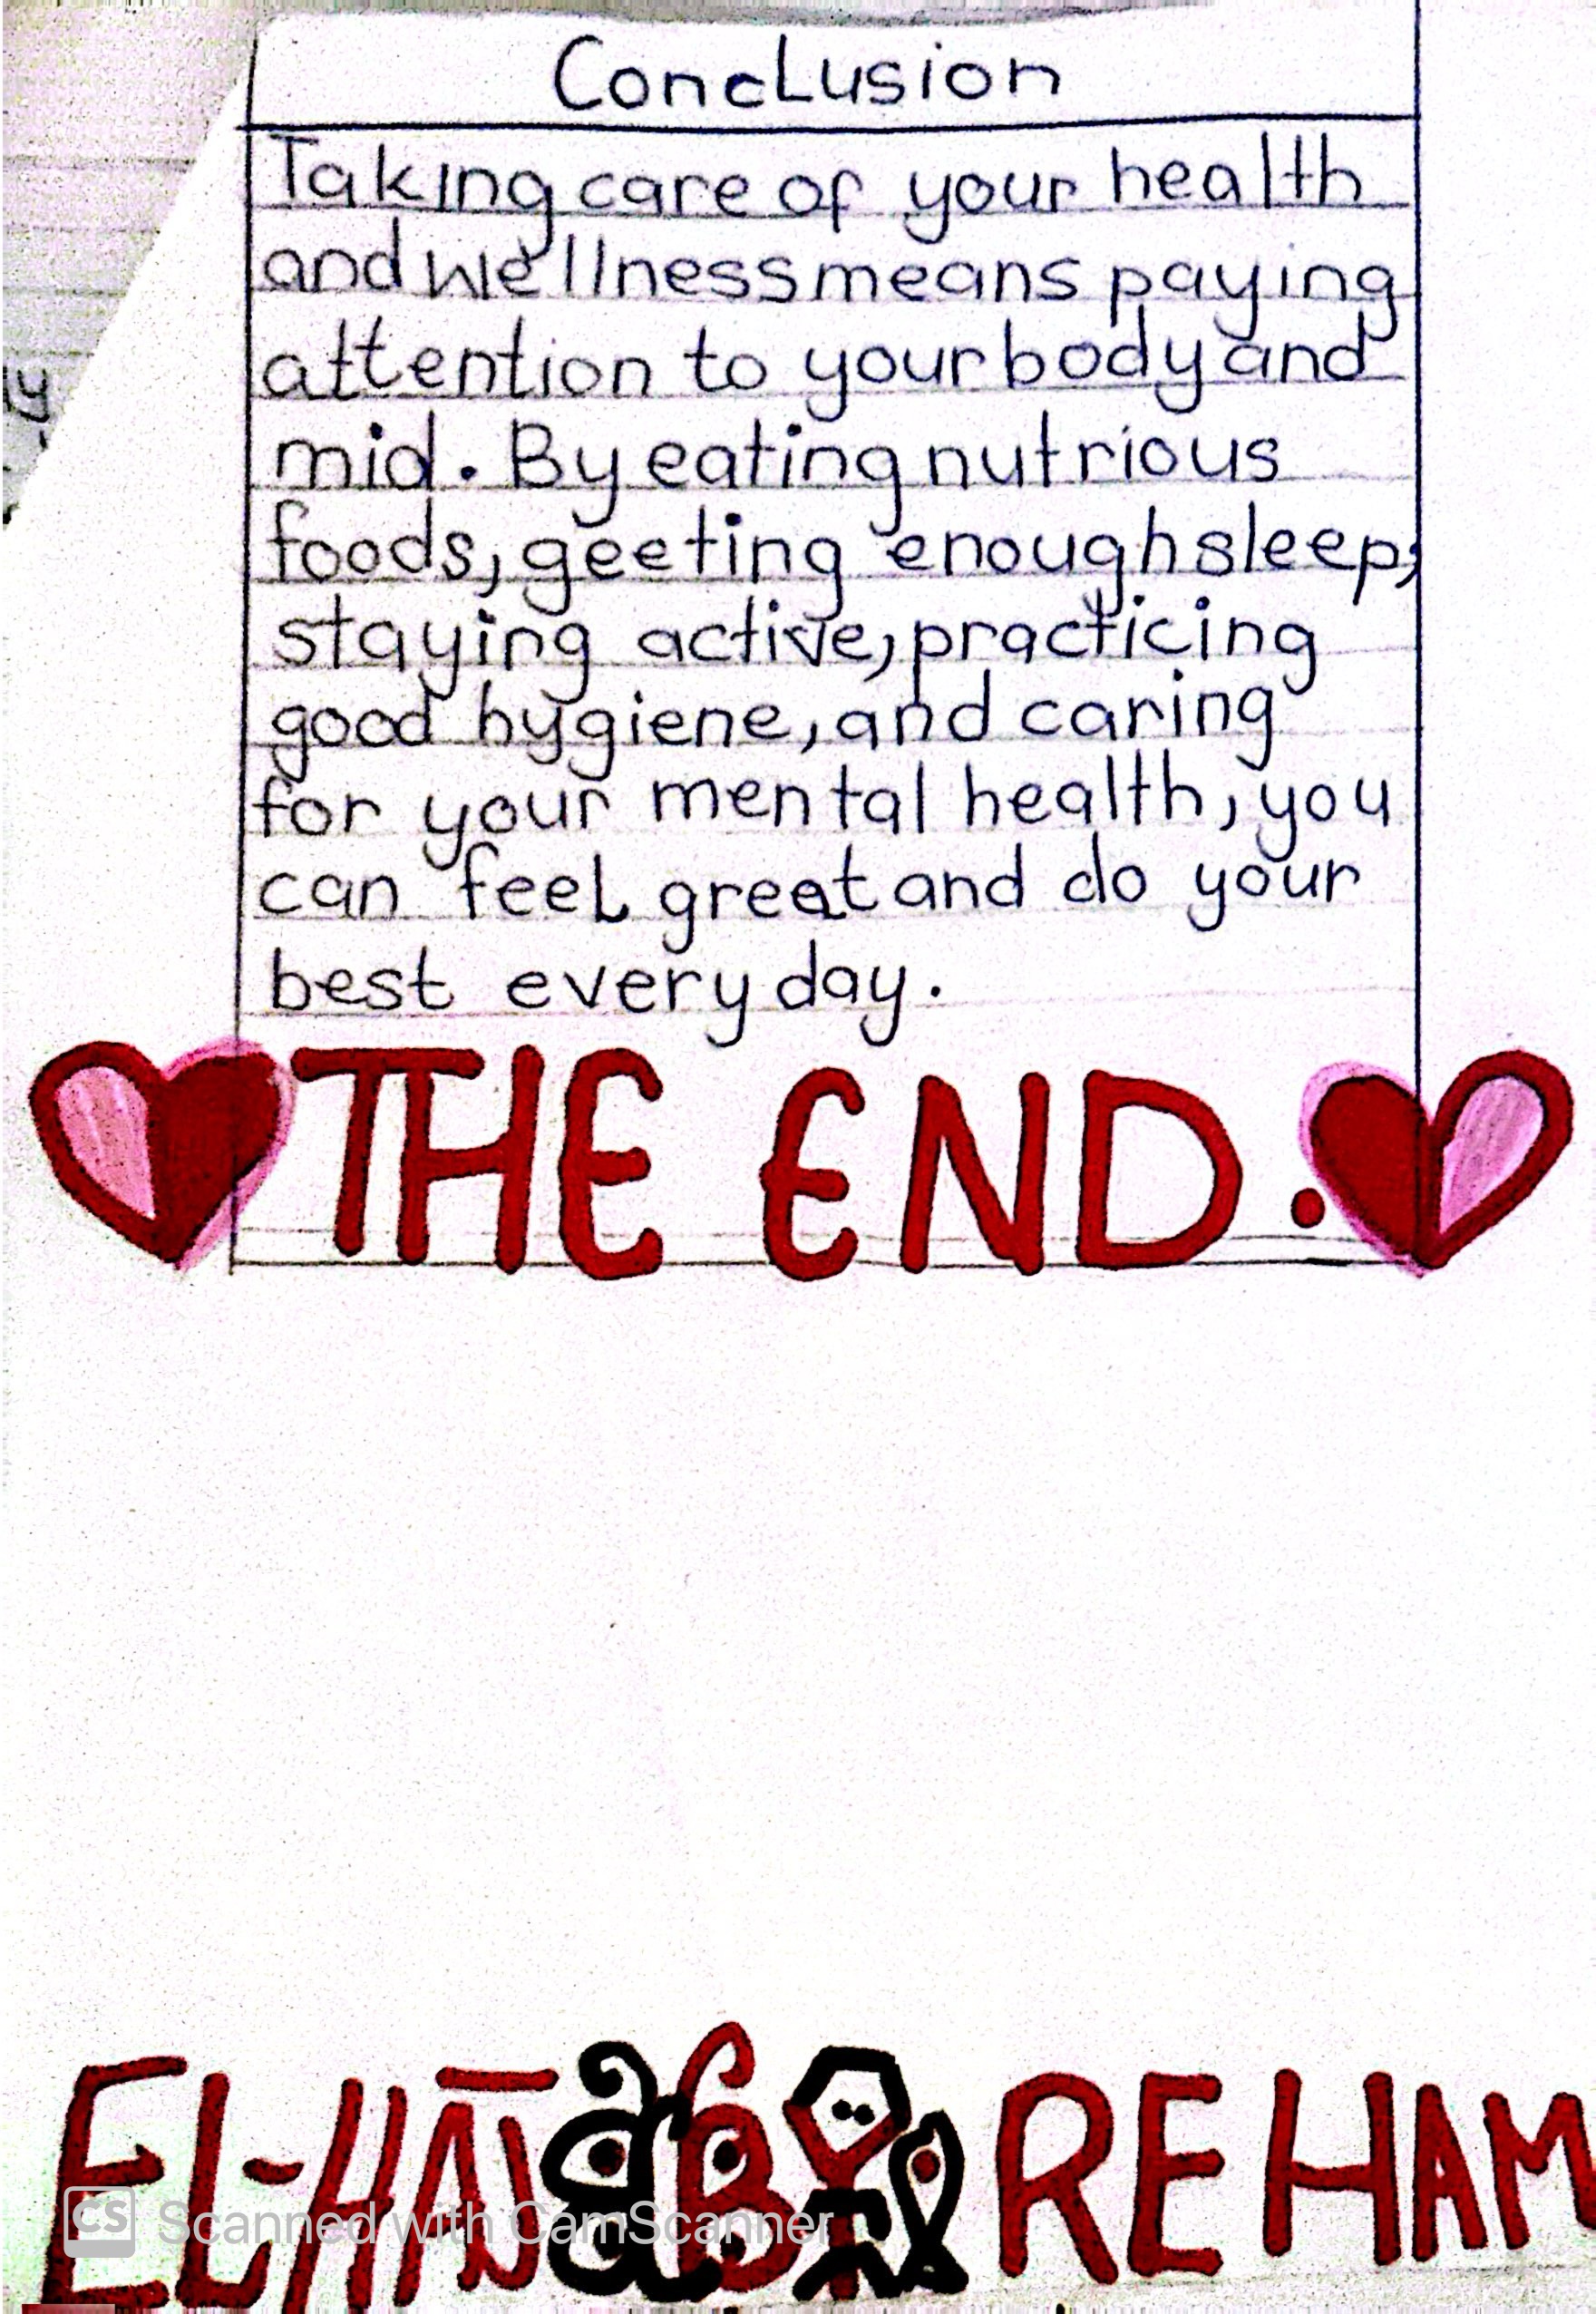 Conclusion
Taking care of your health
and wellness means paying
attention to your body and
mid. By eating nutrious
foods, geeting enough sleep,
staying active, practicing
good hygiene, and caring
for your mental health, you
can feel great and do your
best every day.
THE END.
REHAM
Scanned with CamScanner
CS